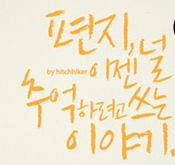 편지,
by hitchhiker
이젠 널
추억하려고 쓰는
이야기.